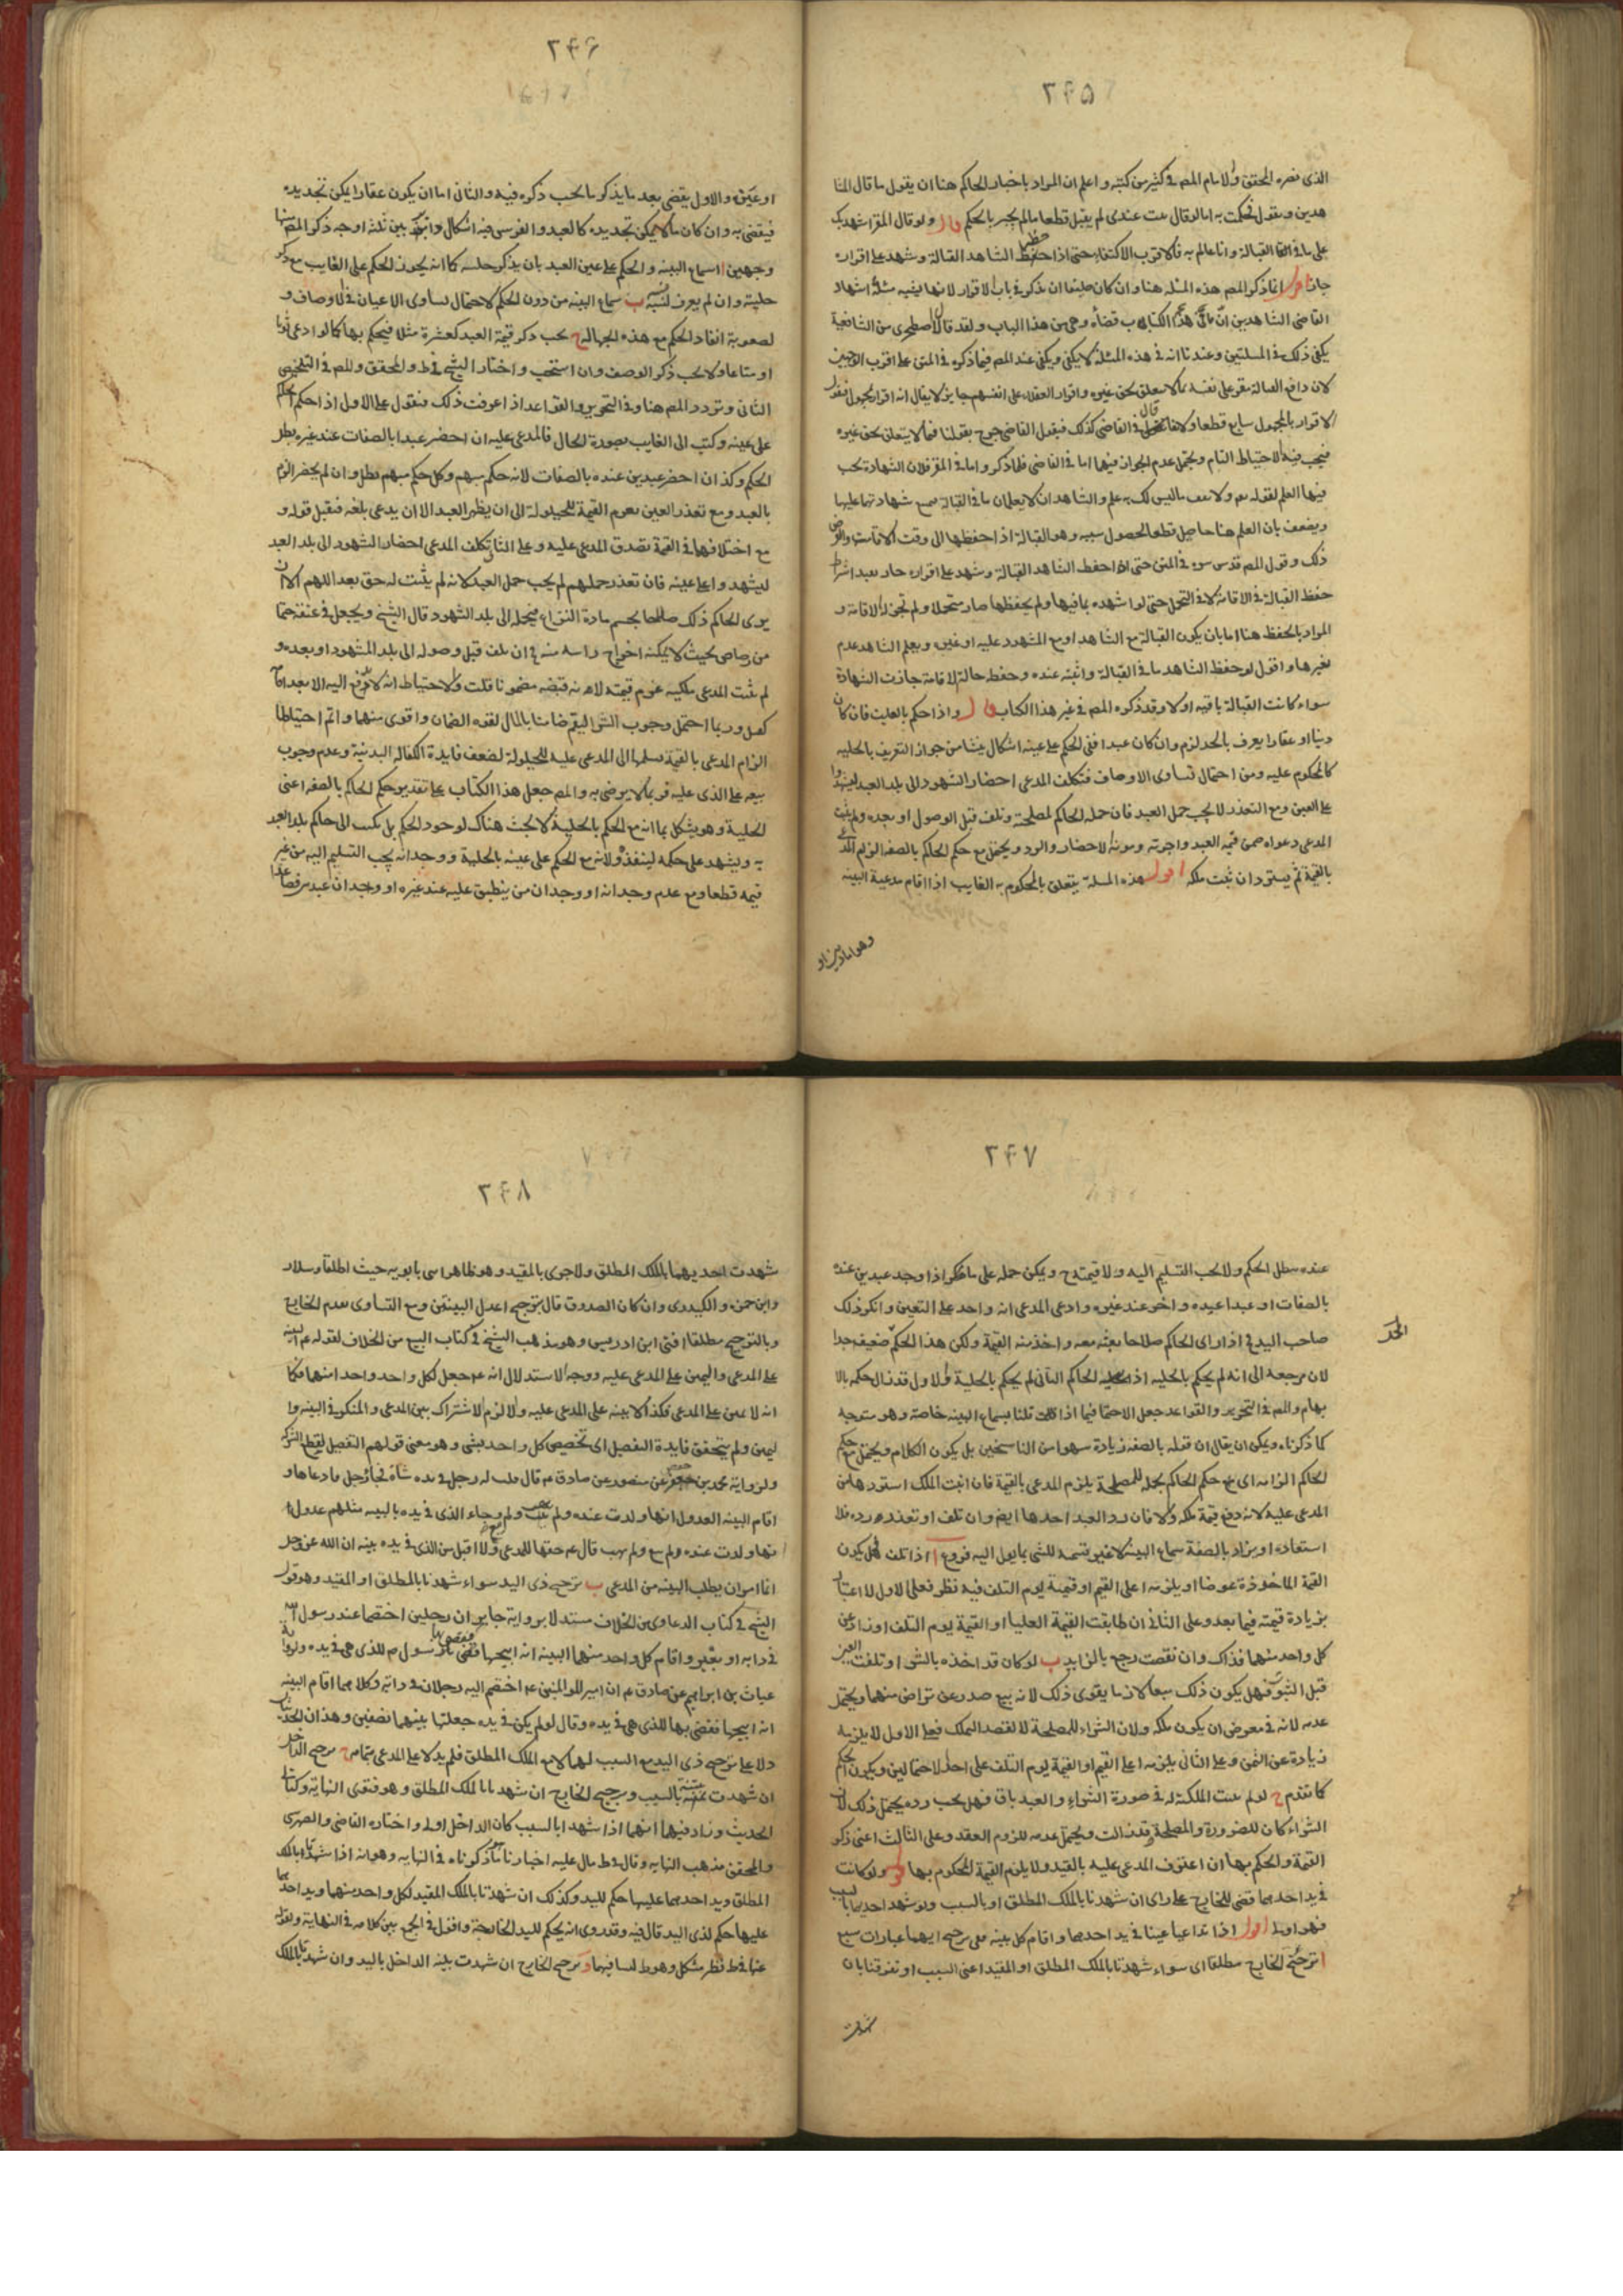 ٢٤٥
الذى نصره المحقق والامام المصـ فى كثير من كتبه واعلم ان المراد باخبار الحاكم هنا ان يقول ما قال الشا
هدين ويقول فحكمت به اما لو قال ثبت عندى لم يقبل قطعا ما لم يخبر بالحكم قال ولو قال المقر اشهدك
على ما فى القبالة وانا عالم به فالاقرب الاكتفاء حتى اذا حفظ الشاهد القبالة وشهد على اقراره
جاز اقول انما ذكر المصـ هذه المسئلة هنا وان كان حقها ان يذكر فى باب الاقرار لانها يشبه مسئلة اشهاد
القاضى الشاهدين ان ما فى هذا الكتاب قضاؤه وهى من هذا الباب ولقد قال الاصطخرى من الشافعية
يكفى ذلك فى المسئلتين وعندنا انه فى هذه المسئلة لا يكفى ويكفى عند المصـ فيما ذكره فى المتن على اقرب الوجهين
لان دافع القبالة مقر على نفسه بما لا يتعلق بحق غيره واقرار العقلاء على انفسهم جايز لا يقال انه اقرار بمجهول فنقول
الاقرار بالمجهول سايغ قطعا ولا فقال فى القاضى كذلك فيقول القاضى خرج بقولنا فما لا يتعلق بحق غيره
فيجب فيه الاحتياط التام ويحتمل عدم الجواز فيهما اما فى القاضى فلما ذكر واما فى المقر فلان الشهادة يجب
فيها العلم لقوله تع ولا تقف ما ليس لك به علم والشاهدان لا يعلمان ما فى القبالة شهادتهما عليها
ويضعف بان العلم هنا حاصل قطعا لحصول سببه وهو القبالة اذا حفظها الى وقت الاقامة والفرض
ذلك وقول المصـ قدس سره فى المتن حتى اذا حفظ الشاهد القبالة وشهد على اقراره جاز بعد اشتراط
حفظ القبالة فى الاقامة لا فى التحمل حتى لو اشهده بما فيها ولم يحفظها صار متحملا ولم تجز له الاقامة و
المراد بالحفظ هنا اما بان يكون القبالة مع الشاهد او مع المشهود عليه او غيره ويعلم الشاهد عدم
تغيرها واقول لو حفظ الشاهد ما فى القبالة واثبته عنده وحفظ حالة الاقامة جازت الشهادة
سواء كانت القبالة باقية او لا وقد ذكره المصـ فى غير هذا الكتاب قال واذا حكم بالغايب فان كان
دينا او عقارا يعرف بالحد لزم وان كان عبدا ففى الحكم على عينه اشكال ينشا من جواز التعريف بالحلية
كالمحكوم عليه ومن احتمال تساوى الاوصاف فتكلف المدعى احضار الشهود الى بلد العبد ليشهدوا
على العين ومع التعذر لا يجب حمل العبد فان حمله الحاكم لمصلحة وتلف قبل الوصول او بعده ولم يثبت
المدعى دعواه ضمن قيمة العبد واجرته ومونة الاحضار والرد ويحتمل مع حكم الحاكم بالصفة الزام المدعى
بالقيمة ثم يسترد ان ثبت ملكه اقول هذه المسئلة يتعلق بالمحكوم به الغايب اذا اقام مدعيه البينة
وهو اما دين او
٢٤٦
او عين والاول يقضى بعد ما يذكر ما يجب ذكره فيه والثانى اما ان يكون عقارا يمكن تحديده
فيقضى به وان كان مما لا يمكن تحديده كالعبد والفرس فيه اشكال بين ثلثة اوجه ذكر المصـ منها
وجهين ا سماع البينة والحكم على عين العبد بان يذكر حليته كما انه يجوز الحكم على الغايب مع ذكر
حليته وان لم يعرف نسبه ب سماع البينة من دون الحكم لاحتمال تساوى الاعيان فى الاوصاف و
لصعوبة انفاذ الحكم مع هذه الجهالة ج يجب ذكر قيمة العبد كعشرة مثلا فيحكم بها كما لو ادعى ثوبا
او متاعا ولا يجب ذكر الوصف وان استحب واختار الشيخ فى ط والمحقق والمصـ فى التلخيص
الثانى وتردد المصـ هنا وفى التحرير والقواعد اذا عرفت ذلك فنقول على الاول اذا حكم الحاكم
على عينه وكتب الى الغايب بصورة الحال فالمدعى عليه ان احضر عبدا بالصفات عند غيره بطل
الحكم وكذا ان احضر عبدين عنده بالصفات لانه حكم مبهم وكل حكم مبهم يبطل وان لم يحضر الزم
بالعبد ومع تعذر العين يغرم القيمة للحيلولة الى ان يظهر العبد الا ان يدعى تلفه فيقبل قوله و
مع اختلافهما فى القيمة يصدق المدعى عليه وعلى الثانى تكلف المدعى احضار الشهود الى بلد العبد
ليشهدوا على عينه فان تعذر حملهم لم يجب حمل العبد لانه لم يثبت له حق بعد اللهم الا ان
يرى الحاكم ذلك صلاحا بحسم مادة النزاع فيحمله الى بلد الشهود قال الشيخ ويجعل فى عنقه ختما
من رصاص بحيث لا يمكنه اخراج راسه منه فان تلف قبل وصوله الى بلد الشهود او بعده و
لم يثبت المدعى ملكيته غرم قيمته لانه قبضه مضمونا قلت والاحتياط انه لا يدفع اليه الا بعد اقامة
كفيل وربما احتمل وجوب الشراء بالمال لقوة الضمان واقوى منهما واتم احتياطا
الزام المدعى بالقيمة يسلمها الى المدعى عليه للحيلولة لضعف فايدة الكفالة البدنية وعدم وجوب
بيعه على الذى عليه فربما لا يرضى به والمصـ جعل هذا الكتاب على تقدير حكم الحاكم بالصفة اعنى
الحلية وهو يشكل بما انه مع الحكم بالحلية لا بحث هناك لوجود الحكم بل يكتب الى حاكم بلد العبد
به ويشهد على حكمه لينفذ ولانه مع الحكم على عينه بالحلية ووجدانه يجب التسليم اليه من غير
قيمة قطعا ومع عدم وجدانه او وجدان من ينطبق عليه عند غيره او وجدان عبدين فصاعدا
٢٤٧
عنده يبطل الحكم ولا يجب التسليم اليه ولا قيمة ح ويمكن حمله على ما اذا وجد عبدين عنده
بالصفات او عبدا عنده واخر عند غيره وادعى المدعى انه واحد على التعيين وانكر ذلك
صاحب اليد فح اذا راى الحاكم صلاحا بعثه معه واخذ منه القيمة ولكن هذا الحكم ضعيف جدا
لان مرجعه الى انه لم يحكم بالحلية اذ الحاكم الثانى لم يحكم بالحلية والاول قد زال حكمه بالا
بهام والمصـ فى التحرير والقواعد جعل الاحتمال فيما اذا قلنا بسماع البينة خاصة وهو متوجه
كما ذكرناه ويمكن ان يقال ان قوله بالصفة زيادة سهوا من الناسخين بل يكون الكلام ويحتمل مع حكم
الحاكم الزامه اى مع حكم الحاكم بحمله للمصلحة يلزم المدعى بالقيمة فان اثبت الملك استردها من
المدعى عليه لانه دفع قيمة ملكه والا فان رد العبد اخذها ايضا وان تلف او تعذر رده فلا
استعادة او يراد بالصفة سماع البينة لا غير تسمية للشى بما يول اليه فروع ا اذا تلف فهل يكون
القيمة الماخوذة عوضا او يلزمه اعلى القيم او قيمته يوم التلف فيه نظر فعلى الاول لا اعتبار
بزيادة قيمته فيما بعد وعلى الثانى ان طابقت القيمة العليا او القيمة يوم التلف او زاد عن
كل واحد منهما فذاك وان نقصت رجع بالزايد ب لو كان قد اخذه بالشراء وتلفت العين
قبل الثبوت فهل يكون ذلك بيعا لازما يقوى ذلك لانه بيع صدر عن تراض منهما ويحتمل
عدمه لانه فى معرض ان يكون ملكه ولان الشراء للمصلحة لا لقصد التملك فعلى الاول لا يلزمه
زيادة عن الثمن وعلى الثانى يلزمه اعلى القيم او القيمة يوم التلف على احد الاحتمالين ويكون الحكم
كما تقدم ج لو لم يثبت الملكية له فى صورة الشراء والعبد باق فهل يجب رده يحتمل ذلك لان
الشراء كان للضرورة والمصلحة وقد زالت ويحتمل عدمه للزوم العقد وعلى الثالث اعنى ذكر
القيمة والحكم بها ان اعترف المدعى عليه بالقيد ولا يلزم القيمة المحكوم بها قال ولو كانت
فى يد احدهما قضى للخارج على راى ان شهدتا بالملك المطلق او بالسبب ولو شهد احديهما بالسبب
فهو اولى اقول اذا تداعيا عينا فى يد احدهما واقام كل بينة ففى ترجيح ايهما عبارات سبع
ا ترجيح الخارج مطلقا اى سواء شهدتا بالملك المطلق او المقيد اعنى السبب او تفرقتا بان
شهدت
٢٤٨
شهدت احديهما بالملك المطلق والاخرى بالمقيد وهو ظاهر ابنى بابويه حيث اطلقا وسلار
وابن حمزة والكيدرى وان كان الصدوق قال بترجيح اعدل البينتين ومع التساوى يقدم الخارج
وبالترجيح مطلقا افتى ابن ادريس وهو مذهب الشيخ فى كتاب البيع من الخلاف لقوله ع البينة
على المدعى واليمين على المدعى عليه ووجه الاستدلال انه ع جعل لكل واحد واحدا منهما فكما
انه لا يمين على المدعى فكذا لا بينة على المدعى عليه والا لزم الاشتراك بين المدعى والمنكر فى البينة وا
ليمين ولم يتحقق فايدة التفصيل اى تخصيص كل واحد بشى وهو معنى قولهم التفصيل يقطع الشركة
ولرواية محمد بن حفص عن منصور عن صادق ع قال قلت له رجل فى يده شاة فجاء رجل فادعاها و
اقام البينة العدول انها ولدت عنده ولم يهب ولم يبع وجاء الذى فى يده بالبينة مثلهم عدول ا
نها ولدت عنده ولم يبع ولم يهب قال ع حقها للمدعى ولا اقبل من الذى فى يده بينة ان الله عز وجل
انما امر ان يطلب البينة من المدعى ب ترجيح ذى اليد سواء شهدتا بالمطلق او المقيد وهو قول
الشيخ فى كتاب الدعاوى من الخلاف مستدلا برواية جابر ان رجلين اختصما عند رسول الله
فى دابة او بعير واقام كل واحد منهما البينة انه انتجها فقضى بها رسول م للذى هى فى يده ولرواية
غياث بن ابراهيم عن صادق ع ان امير المؤمنين ع اختصم اليه رجلان فى دابة وكلاهما اقام البينة
انه انتجها فقضى بها للذى هى فى يده وقال لو لم يكن فى يده جعلتها بينهما نصفين وهذان الحديثان
دلا على ترجيح ذى اليد مع السبب لهما لا مع الملك المطلق فلم يدلا على المدعى بتمامه ج ترجيح الداخل
ان شهدت بينته بالسبب وترجيح الخارج ان شهدتا بالملك المطلق وهو فتوى النهاية وكتابى
الحديث وزاد فيهما انهما اذا شهدا بالسبب كان الداخل اولى واختاره القاضى والصهرشتى
والمحقق مذهب النهاية وقال فى ط مال عليه اخبارنا ما ذكرناه فى النهاية وهو انه اذا شهدتا بالملك
المطلق ويد احدهما عليها حكم لليد وكذلك ان شهدتا بالملك المقيد لكل واحد منهما ويد احدهما
عليها حكم لذى اليد قال فيه وقد روى انه يحكم لليد الخارجة واقول فى الجمع بين كلامه فى النهاية ونقله
عنها فى ط نظر مشكل وهو ط لمتاملها د ترجيح الخارج ان شهدت بينة الداخل باليد وان شهدتا بالملك